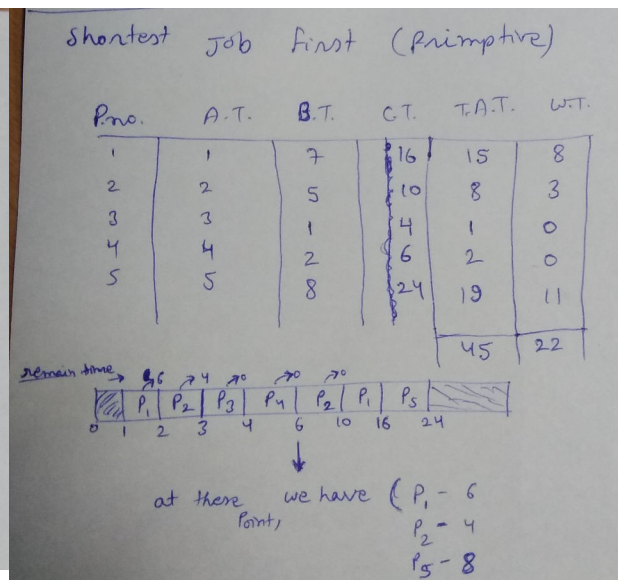 Shortest Job First (Primptive)
P.no. A.T. B.T. C.T. T.A.T. W.T.
1 1 7 16 15 8
2 2 5 10 8 3
3 3 1 4 1 0
4 4 2 6 2 0
5 5 8 24 19 11
45 22
remain time → 6 4 0 0 0
P1 P2 P3 P4 P2 P1 P5
0 1 2 3 4 6 10 16 24
at there Point, we have ( P1 - 6
P2 - 4
P5 - 8